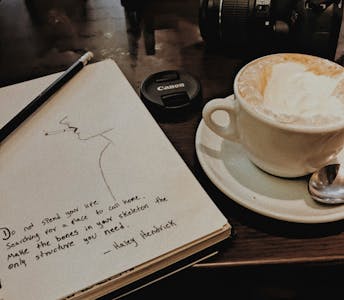 Canon
Do not spend your life
searching for a place to call home.
Make the bones in your skeleton the
only structure you need.
— Haley Hendrick